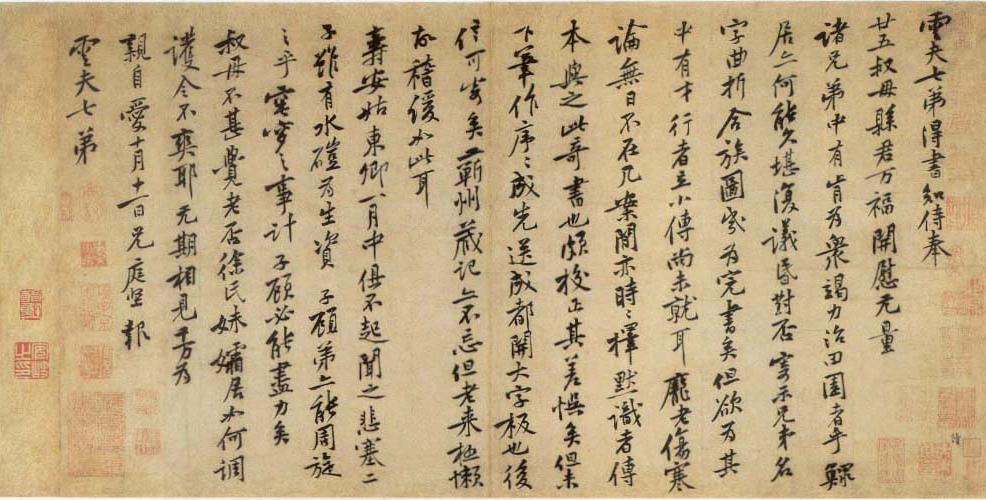 雲夫七弟得書知侍奉
廿五叔母縣君万福開慰无量
諸兄弟中有肯为衆竭力治田園者乎鰥
居亦何能久堪復議昏對否寄示兄弟名
字曲折合族圖歲为完書矣但欲为其
中有才行者立小傳尚未就耳龐老傷寒
論無日不在几案間亦時時擇默識者傳
本與之此奇書也頗校正其差悮矣但未
下筆作序序成先送成都開大字板也後
信可寄矣蘄州藏記亦不忘但老来極懒
故稽缓如此耳
壽安姑東卿一月中俱不起聞之悲塞二
子雖有水磑为生資子顧弟亦能周旋
之乎窀穸之事計子顧必能盡力矣
叔母不甚覺老否徐氏妹孀居如何調
護令不爽耶无期相見千万为
親自愛十月十一日兄庭坚報
雲夫七弟